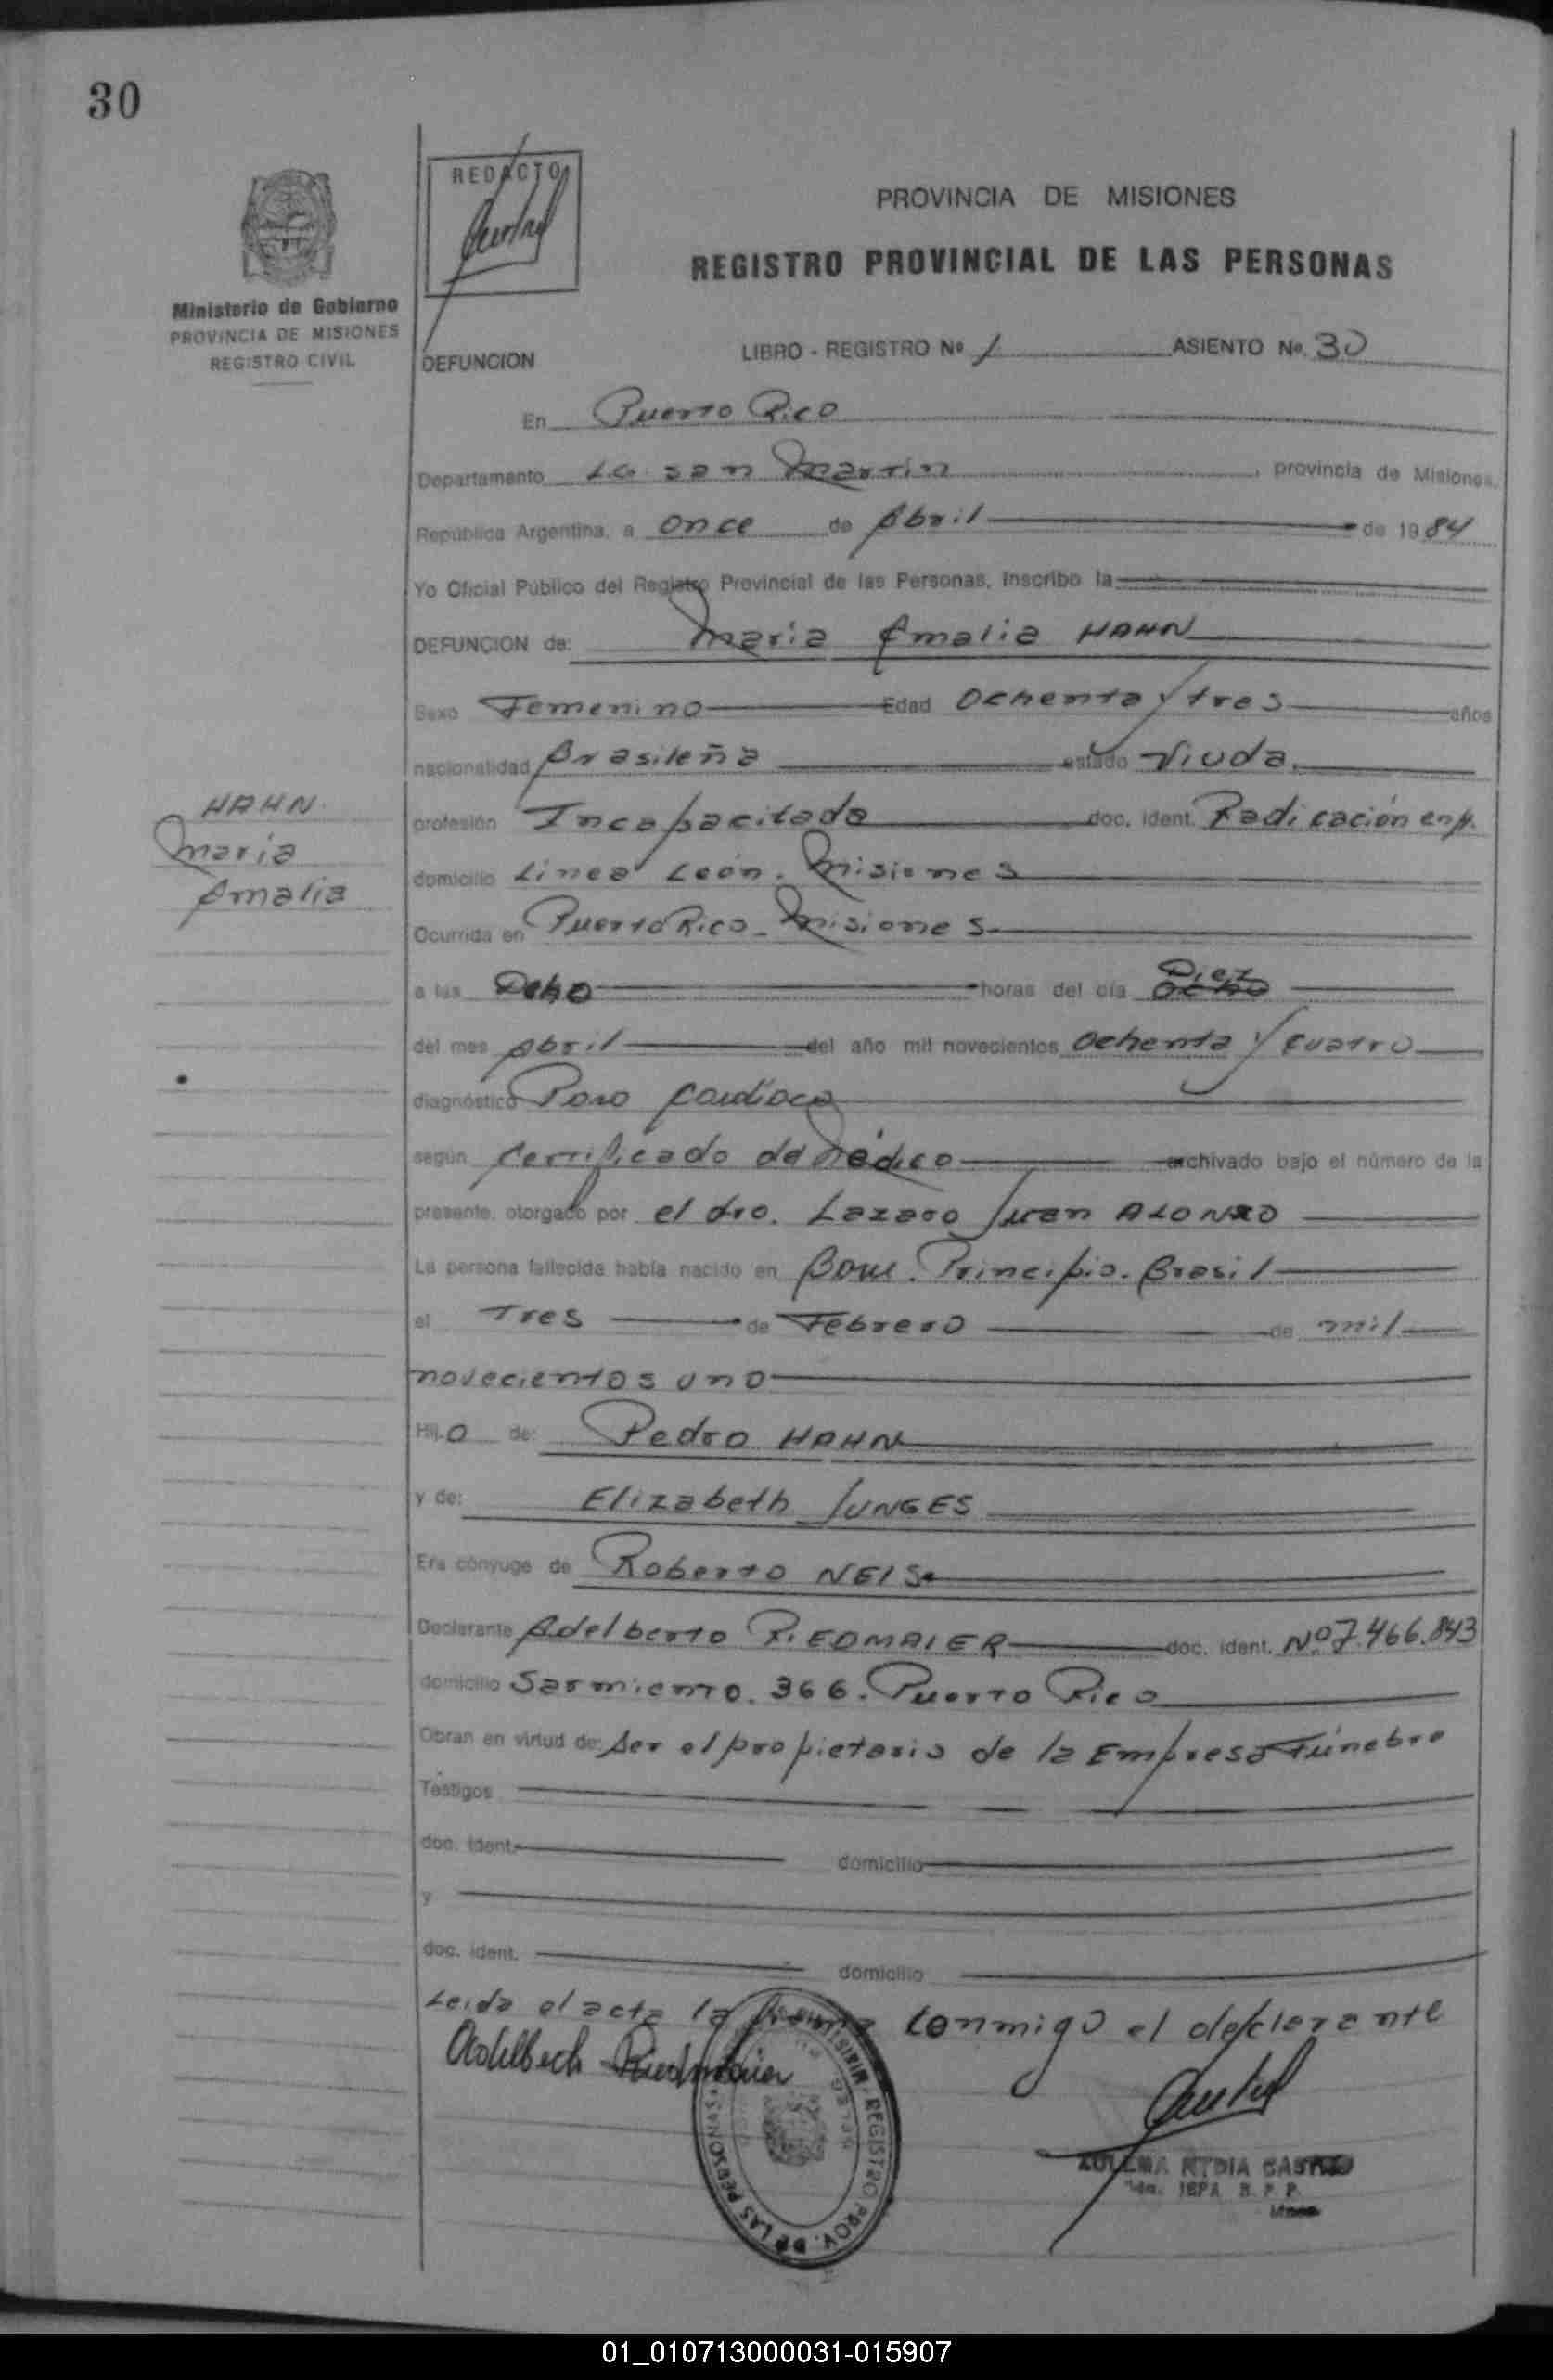 30
REDACTO
PROVINCIA DE MISIONES
REGISTRO PROVINCIAL DE LAS PERSONAS
Ministerio de Gobierno
PROVINCIA DE MISIONES
REGISTRO CIVIL
DEFUNCION
LIBRO - REGISTRO Nº 1 ASIENTO Nº 30
En Puerto Rico
Departamento LG San Martin, provincia de Misiones,
República Argentina, a once de Abril de 1984
Yo Oficial Público del Registro Provincial de las Personas, inscribo la
DEFUNCION de: Maria Amalia HAHN
Sexo Femenino Edad Ochenta y tres años
nacionalidad Brasileña estado Viuda.
HAHN
Maria
Amalia
profesión Incapacitada doc. ident. Radicación en p.
domicilio Linea León. Misiones
Ocurrida en Puerto Rico. Misiones
a las Ocho horas del día Diez
del mes Abril del año mil novecientos Ochenta y cuatro
diagnóstico Paro Cardíaco
según Certificado de Médico archivado bajo el número de la
presente, otorgado por el dro. Lazaro Juan ALONSO
La persona fallecida había nacido en Bom. Principio. Brasil
el Tres de Febrero de mil
novecientos uno
Hijo de: Pedro HAHN
y de: Elizabeth JUNGES
Era cónyuge de Roberto NEIS
Declarante Adelberto RIEDMAIER doc. ident. Nº 7.466.843
domicilio Sarmiento. 366. Puerto Rico
Obran en virtud de: Ser el propietario de la Empresa Fúnebre
Testigos
doc. ident. domicilio
y
doc. ident. domicilio
Leida el acta la firma conmigo el declarante
REGISTRO PROV. DE LAS PERSONAS
CASTRO
01_010713000031-015907